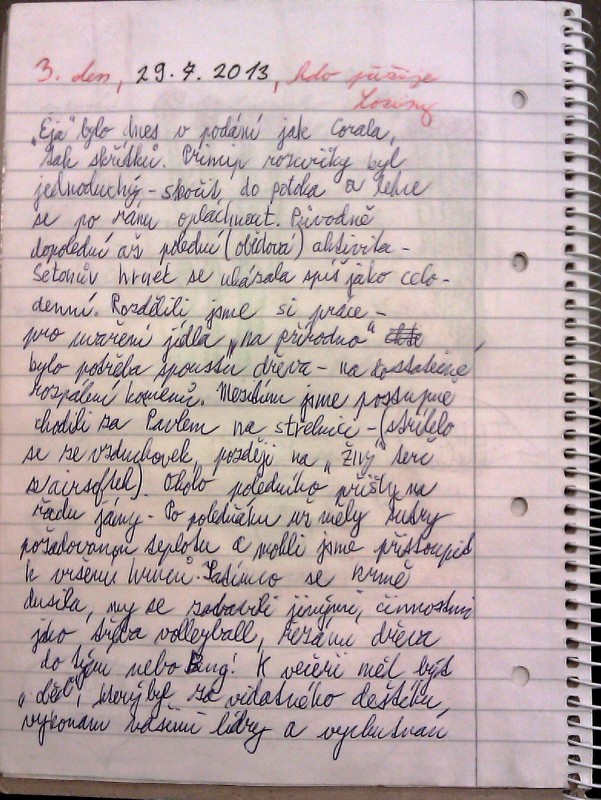 3. den, 29.7.2013, kdo přežije
Losiny
„Ejá" bylo dnes v podání jak Corala,
tak skřítků. Princip rozcvičky byl
jednoduchý - skočit do potoka a lehce
se po ránu opláchnout. Původně
dopolední až polední (obědová) aktivita -
Setonův hrnek se ukázala spíš jako celo-
denní. Rozdělili jsme si práce -
pro uvaření jídla „na přírodno"
bylo potřeba spoustu dřeva - na dostatečné
rozpálení kamenů. Mezitím jsme postupně
chodili za Pavlem na střelnici - (střílelo
se ze vzduchovek, později na „živý" terč
z airsoftek). Okolo poledního přišly na
řadu jámy - Po poledňáku už měly šutry
požadovanou teplotu a mohli jsme přistoupit
k vršení hrnců. Zatímco se krmě
dusila, my se zabavili jinými, činnostmi
jako třeba volleyball, řezání dřeva
do týmu nebo Bang! K večeři měl být
„děl", který byl za vydatného deštíku,
vykonán našimi lídry a vychutnání